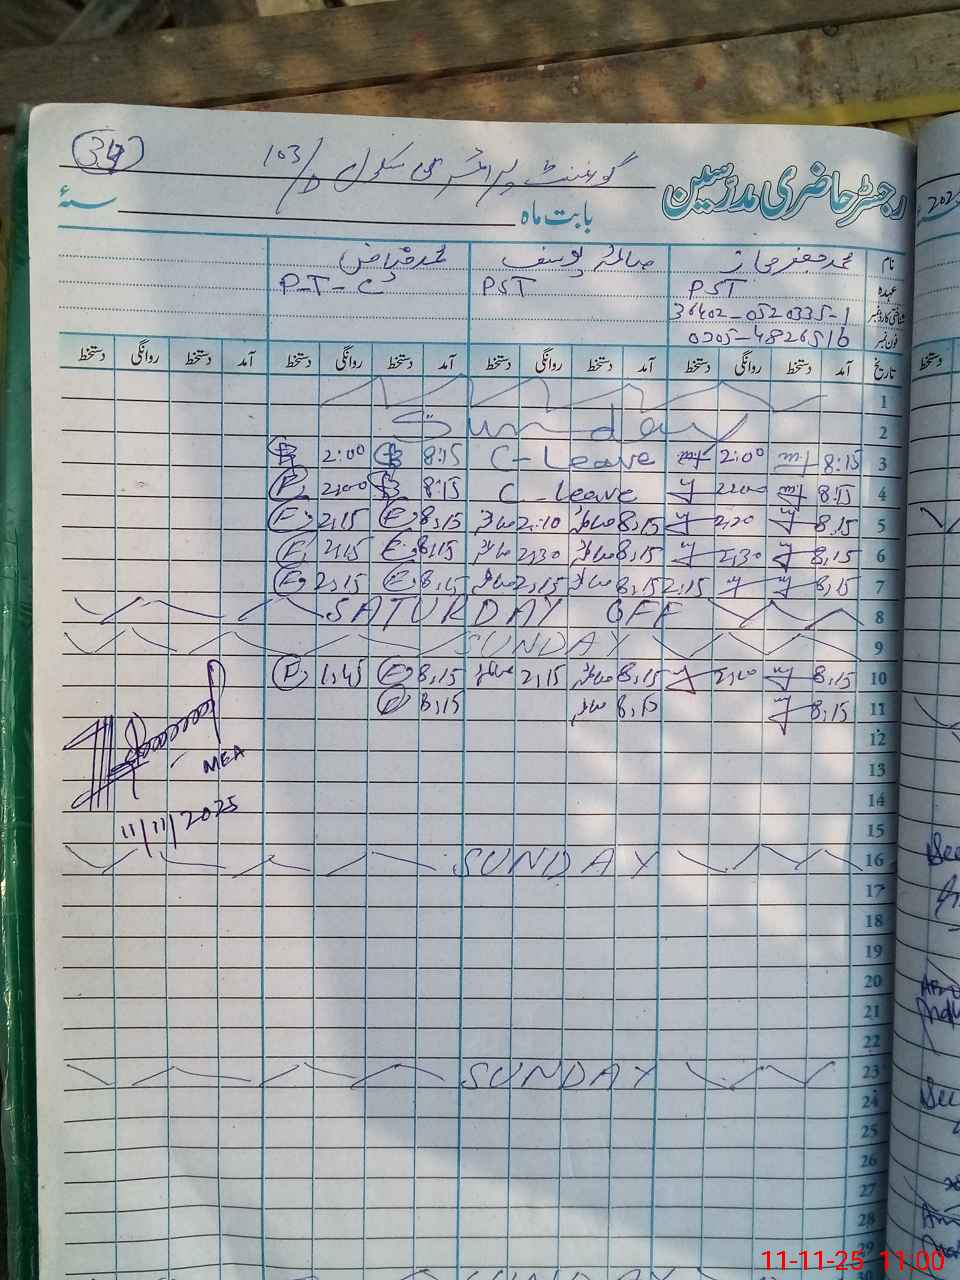 34
گورنمنٹ پرائمری سکول 103/D
رجسٹر حاضری مدرسین
بابت ماہ سنۂ
نام محمد جعفر صائمہ یوسف محمد فیاض
عہدہ PST PST P-T-C
شناختی کارڈ نمبر 36402-0520335-1
فون نمبر 0305-4826516
تاریخ آمد دستخط روانگی دستخط آمد دستخط روانگی دستخط آمد دستخط روانگی دستخط آمد دستخط روانگی دستخط
1
2 Sunday
3 8:15 2:00 C-Leave 8:15 2:00
4 8:15 2:00 C-Leave 8:15 2:00
5 8,15 2,20 8,15 2:10 8,15 2,15
6 8,15 2,30 8,15 2,30 8,15 2,15
7 8,15 2:15 8,15 2,15 8,15 2,15
8 SATURDAY OFF
9 SUNDAY
10 8,15 2,20 8,15 2,15 8,15 1,45
11 8,15 8,15 8,15
12
MEA
13
14
11/11/2025
15
16 SUNDAY
17
18
19
20
21
22
23 SUNDAY
24
25
26
27
28
29
30
11-11-25 11:00